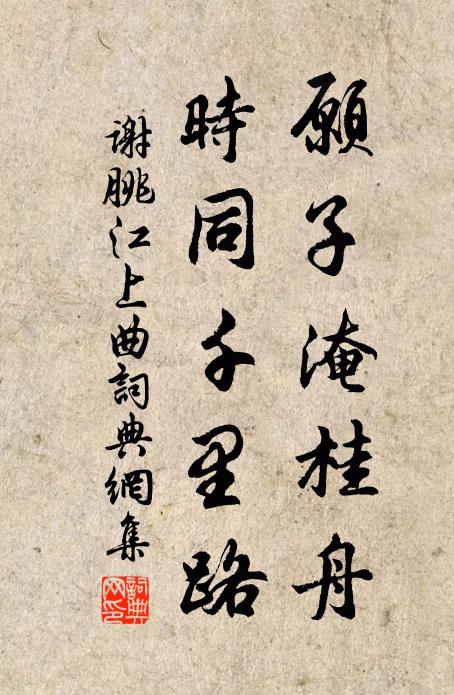 願子淹桂舟
時同千里路
謝朓江上曲詞典網集
詞典網印